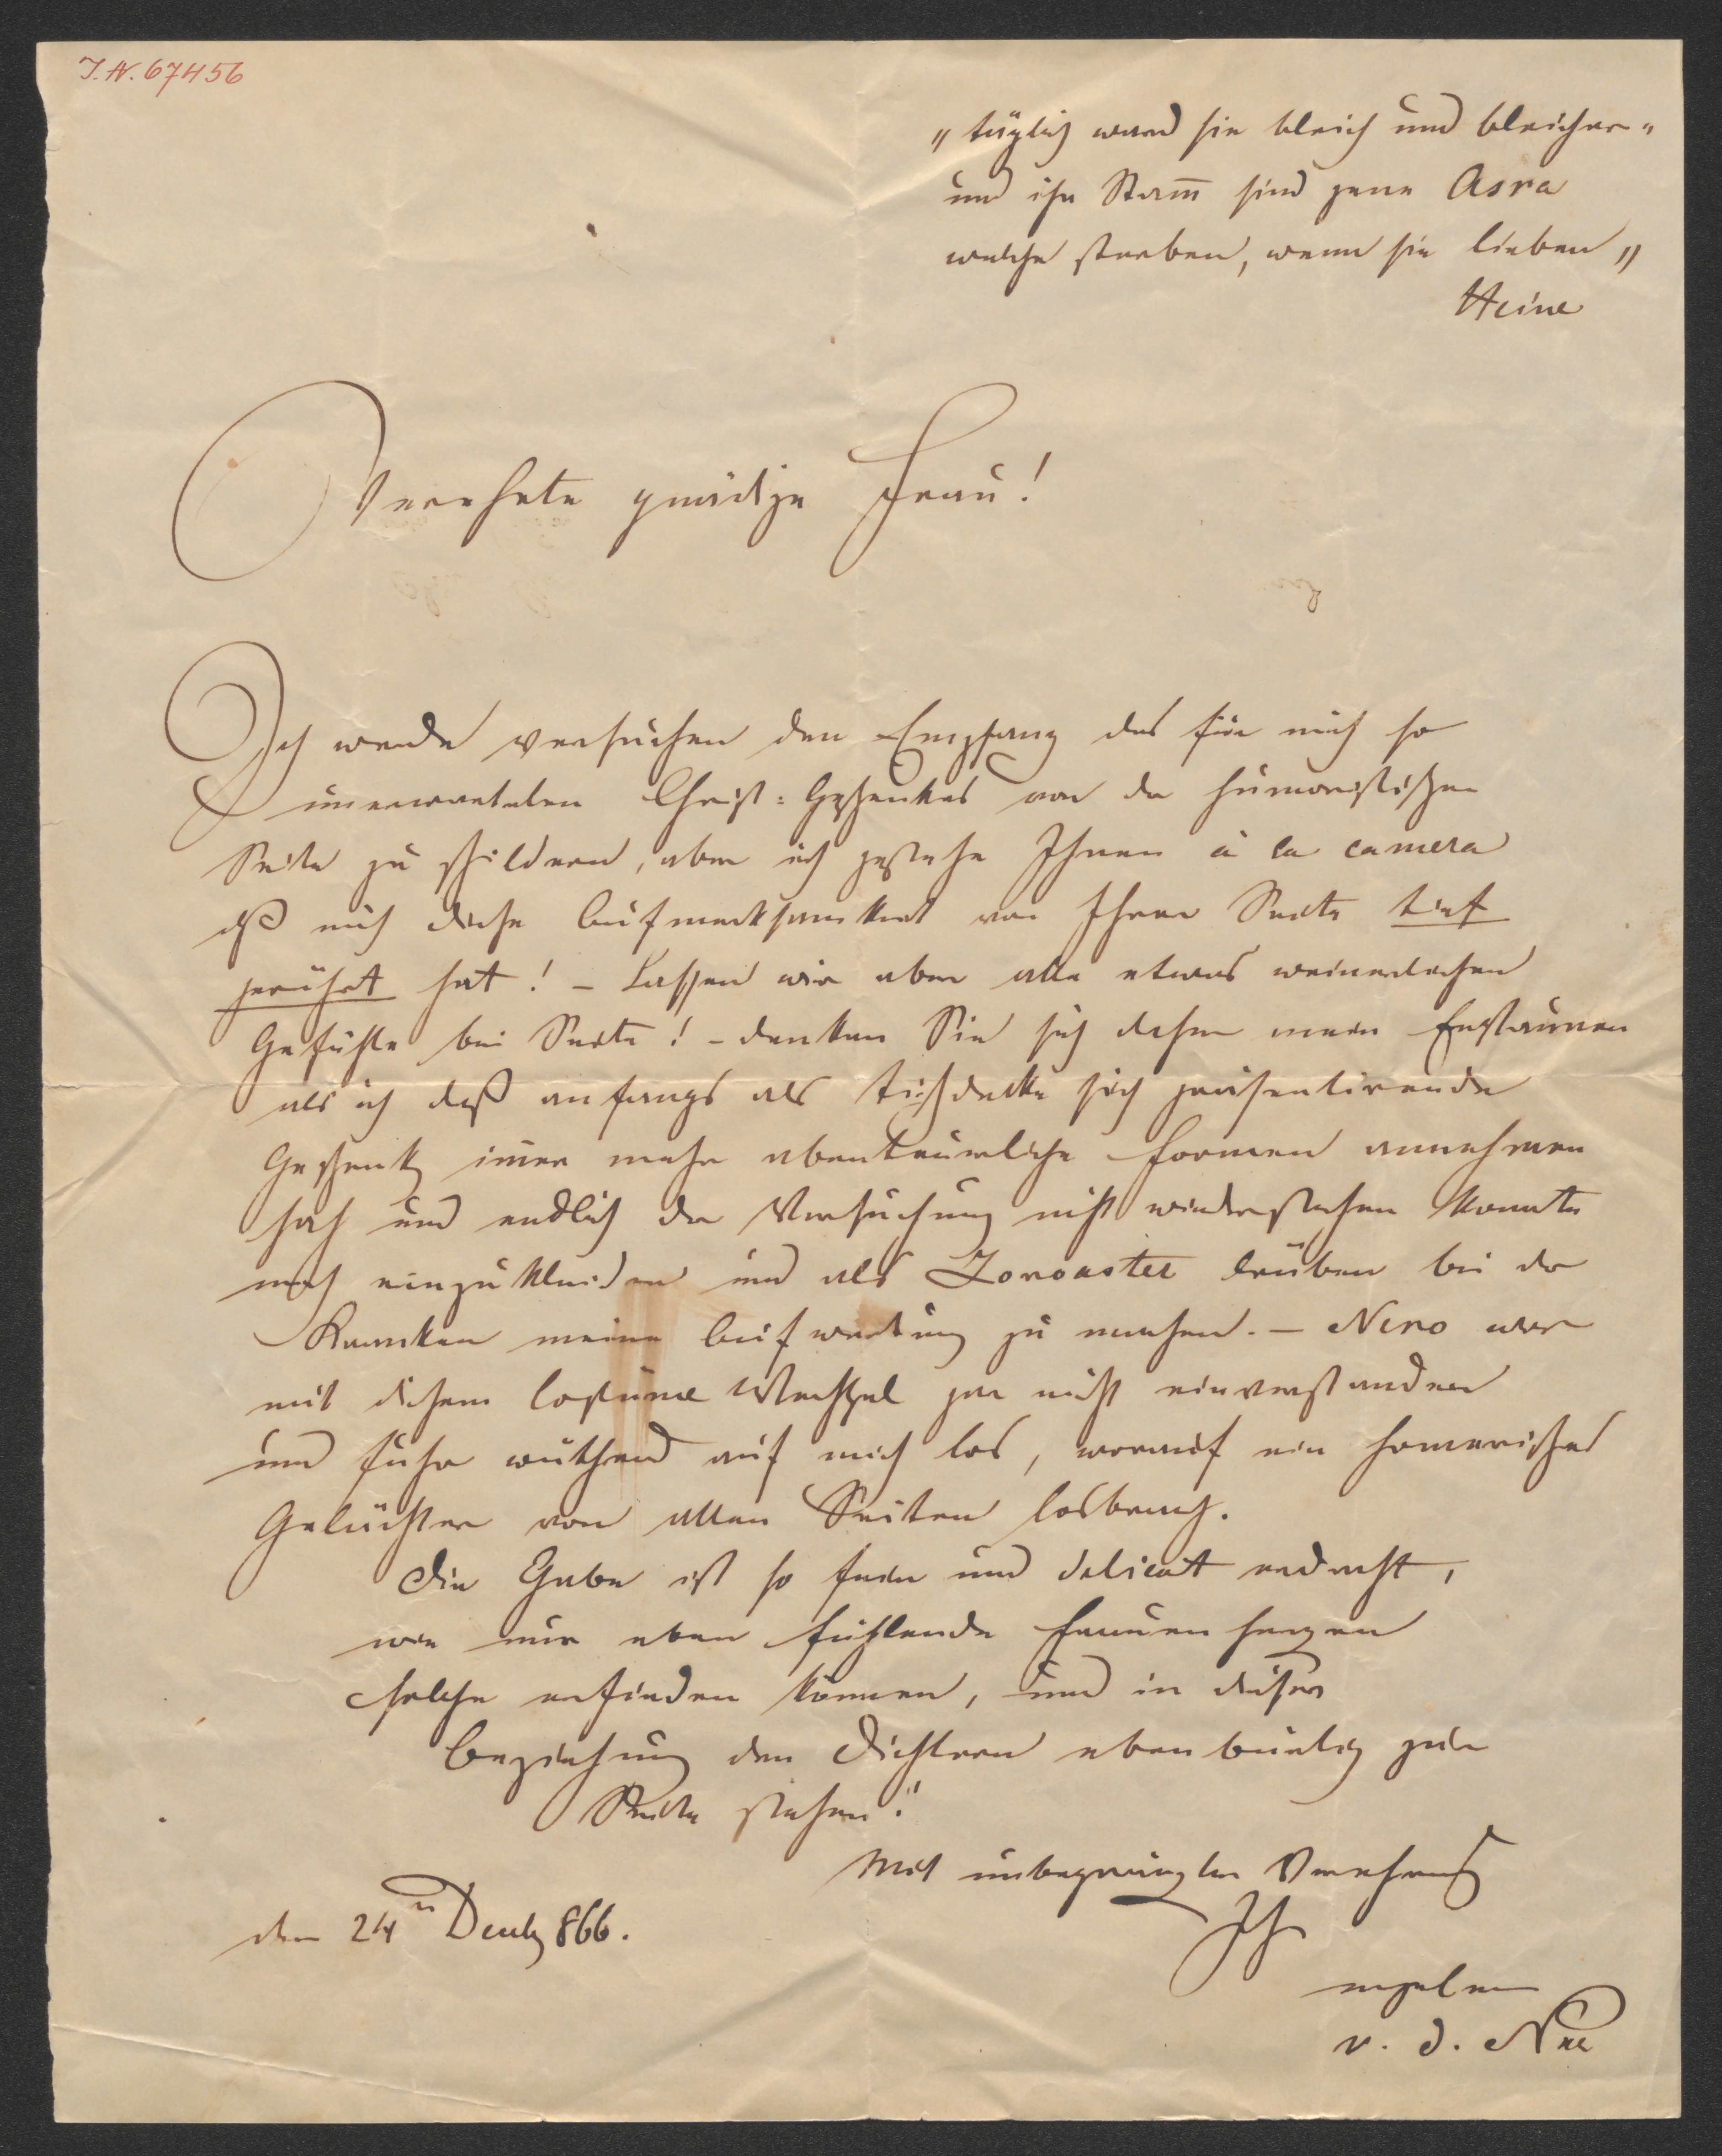 I.N. 67456
„täglich ward sie bleich und bleicher"
und ihr Stam̅ sind jene Asra
welche sterben, wenn sie lieben"
Heine
Verehrte gnädige Frau!
Ich werde versuchen den Empfang des für mich so
unerwarteten Christ=Geschenkes von der humoristischen
Seite zu schildern, aber ich gestehe Ihnen à la camera
dß mich diese Aufmerksamkeit von Ihrer Seite tief
gerührt hat! – Lassen wir aber alle etwas weinerlichen
Gefühle bei Seite! – denken Sie sich daher mein Erstaunen
als ich daß anfangs als Tischdecke sich präsentirende
Geschenk im̅er mehr abenteuerliche Formen annehmen
sah und endlich der Versuchung nicht wiederstehen konnte
mich einzukleiden und als Zoroaster drüben bei der
Kranken meine Aufwartung zu machen. – Nero war
mit diesem Costüme Wechsel gar nicht einverstanden
und fuhr wüthend auf mich los, worauf ein homerisches
Gelächter von allen Seiten losbrach.
Die Gabe ist so fein und delicat erdacht,
wie nur eben fühlende Frauenherzen
solche erfinden können, und in dieser
Beziehung den Dichtern ebenbürtig zur
Seite stehen!
Mit unbegränzter Verehrung
Ihr
ergebener
v. d. Nüll
den 24n Decb 866.